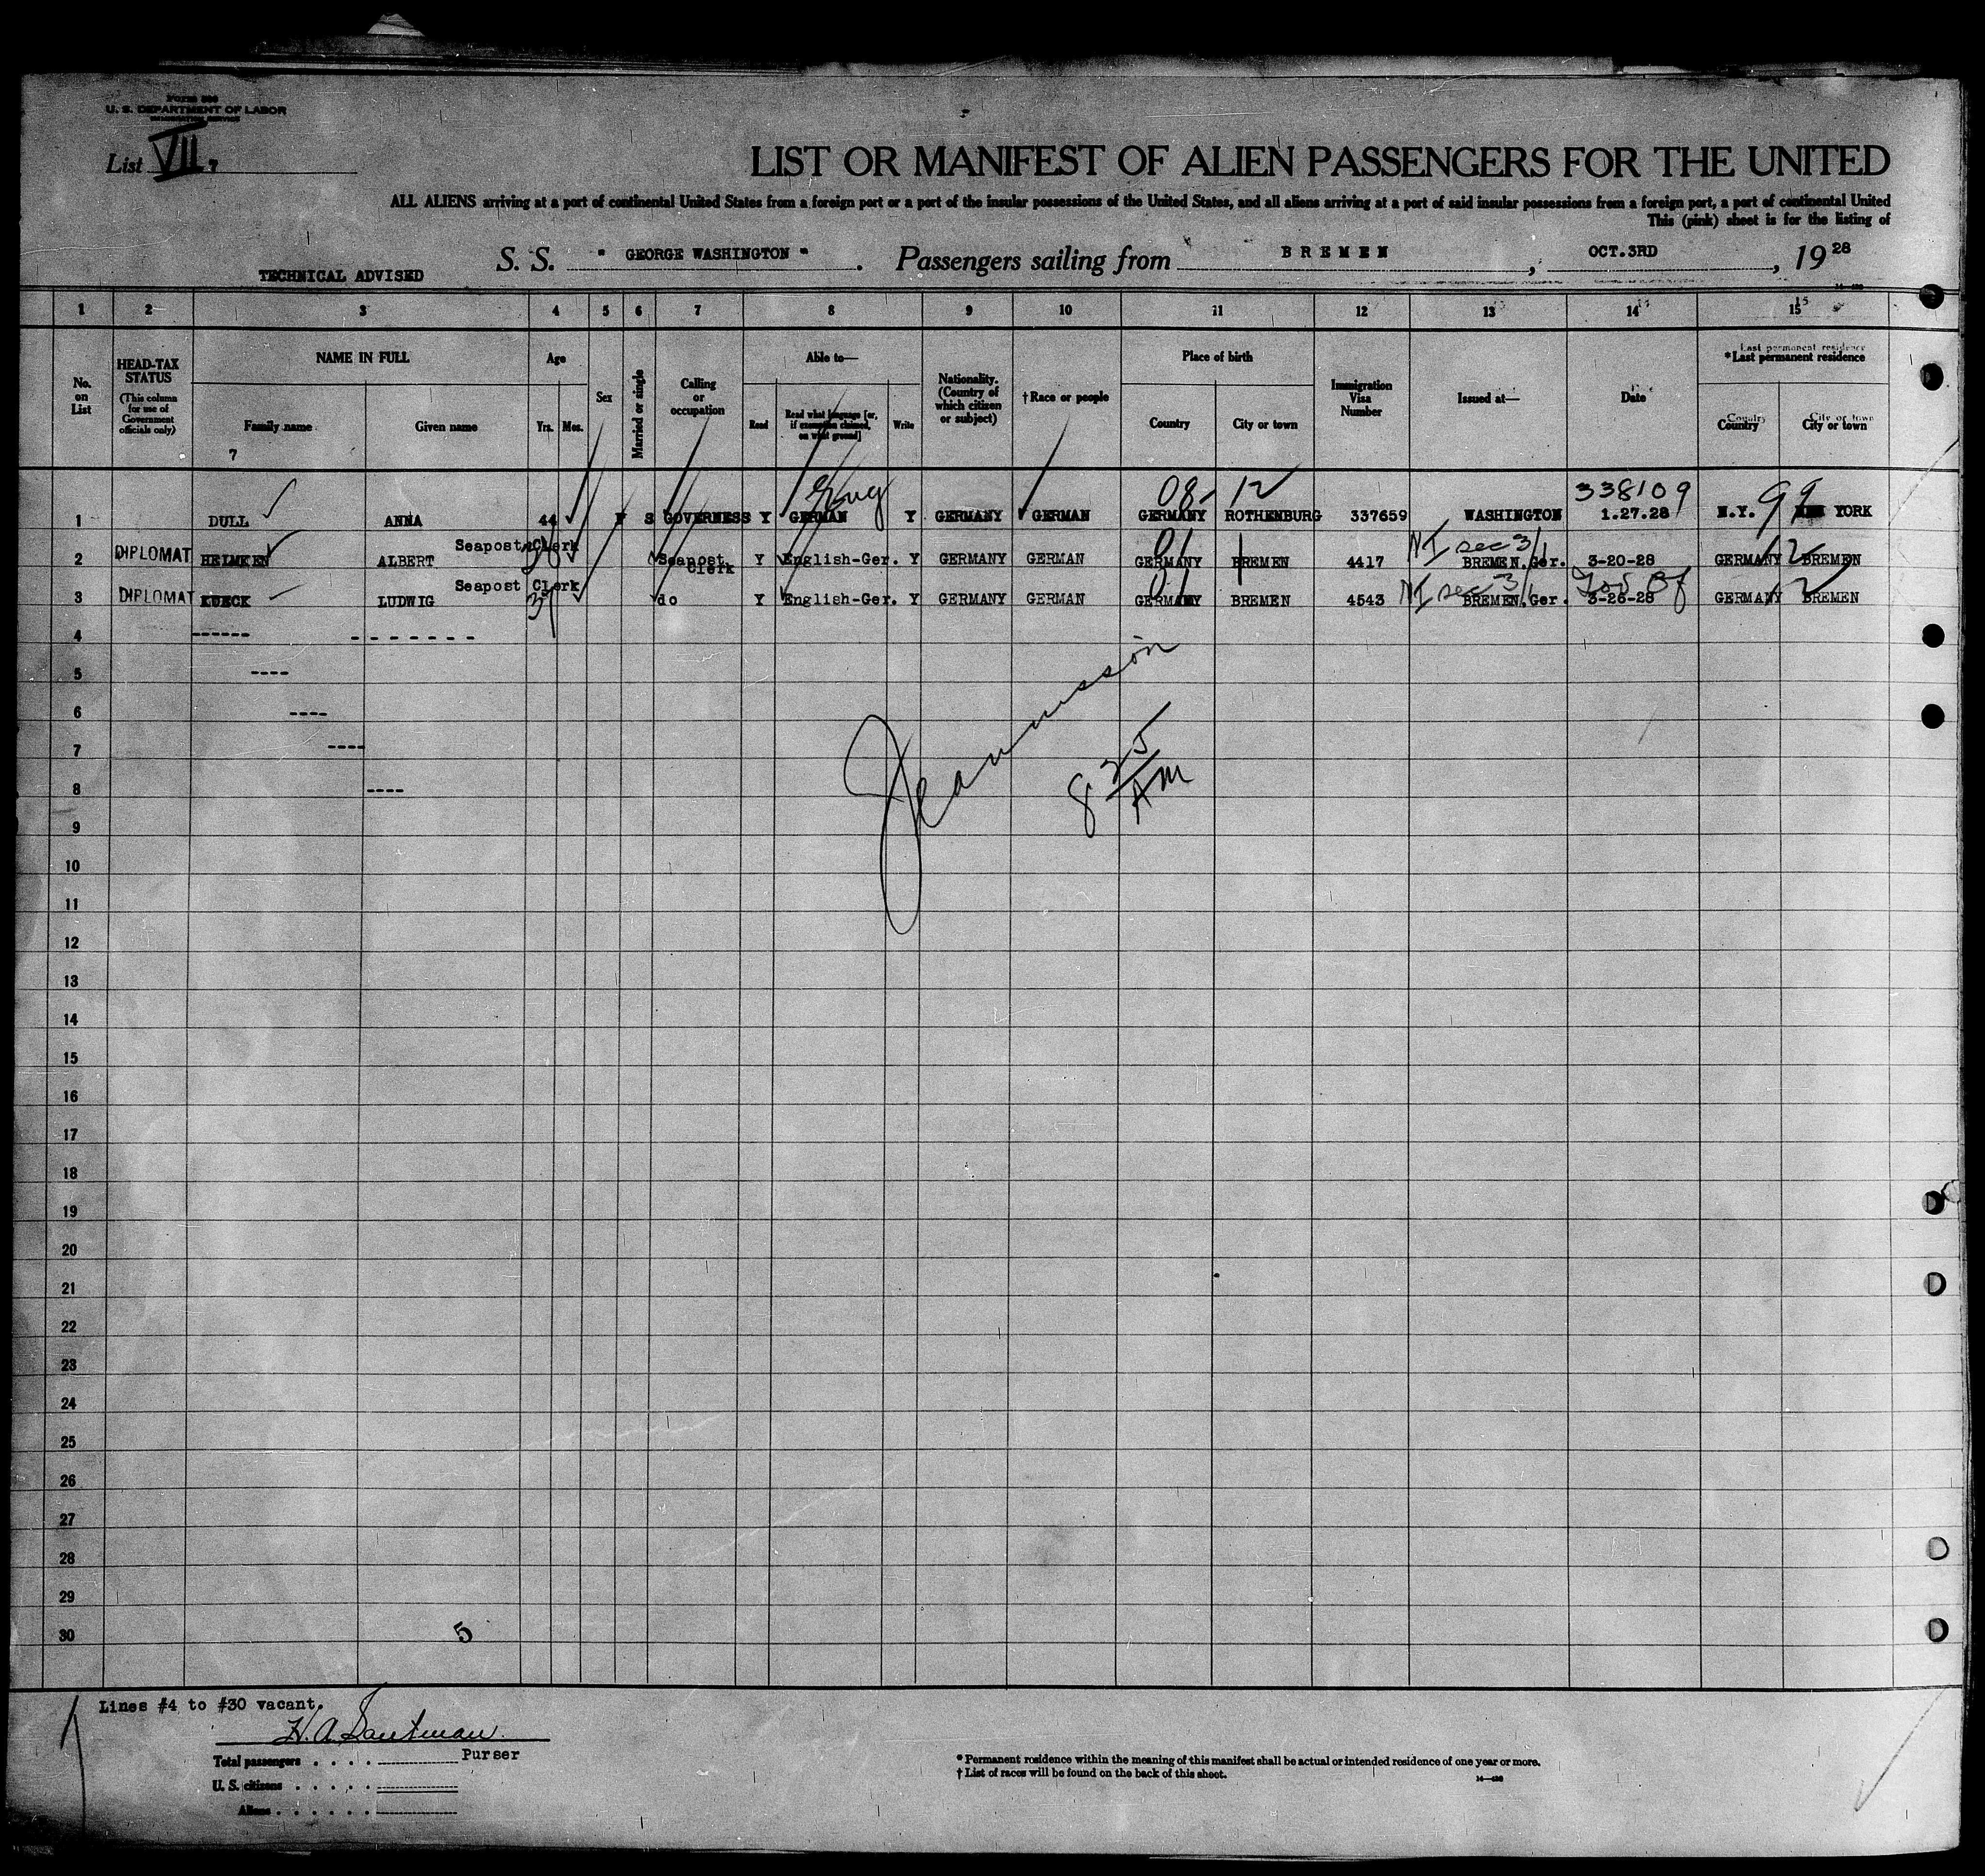 Form 500
U. S. DEPARTMENT OF LABOR
IMMIGRATION SERVICE
List VII 7
LIST OR MANIFEST OF ALIEN PASSENGERS FOR THE UNITED
ALL ALIENS arriving at a port of continental United States from a foreign port or a port of the insular possessions of the United States, and all aliens arriving at a port of said insular possessions from a foreign port, a port of continental United
This (pink) sheet is for the listing of
S. S. " GEORGE WASHINGTON ". Passengers sailing from BREMEN, OCT.3RD, 1928
TECHNICAL ADVISED
1 2 3 4 5 6 7 8 9 10 11 12 13 14 15
No. on List
HEAD-TAX STATUS (This column for use of Government officials only)
NAME IN FULL
Family name
Given name
7
Age
Yrs. Mos.
Sex
Married or single
Calling or occupation
Able to—
Read
Read what language [or, if exemption claimed, on what ground]
Write
Nationality. (Country of which citizen or subject)
† Race or people
Place of birth
Country
City or town
Immigration Visa Number
Issued at—
Date
*Last permanent residence
Country
City or town
Eng 08- 12 338109 99
1 DULL ANNA 44 F S GOVERNESS Y GERMAN Y GERMANY GERMAN GERMANY ROTHENBURG 337659 WASHINGTON 1.27.28 N.Y. NEW YORK
Seapost Clerk 01 NI sec 3/1 12
2 DIPLOMAT HEIMKEN ALBERT Seapost Clerk Y English-Ger. Y GERMANY GERMAN GERMANY BREMEN 4417 BREMEN,Ger. 3-20-28 GERMANY BREMEN
Seapost Clerk 01 NI sec 3/1 12
3 DIPLOMAT LUECK LUDWIG 37 do Y English-Ger. Y GERMANY GERMAN GERMANY BREMEN 4543 BREMEN,Ger. 3-26-28 GERMANY BREMEN
4
5
6
7
8
8 25 AM
9
10
11
12
13
14
15
16
17
18
19
20
21
22
23
24
25
26
27
28
29
30
5
Lines #4 to #30 vacant.
Purser
Total passengers . . . .
U. S. citizens . . . . .
Aliens . . . . . .
* Permanent residence within the meaning of this manifest shall be actual or intended residence of one year or more.
† List of races will be found on the back of this sheet.